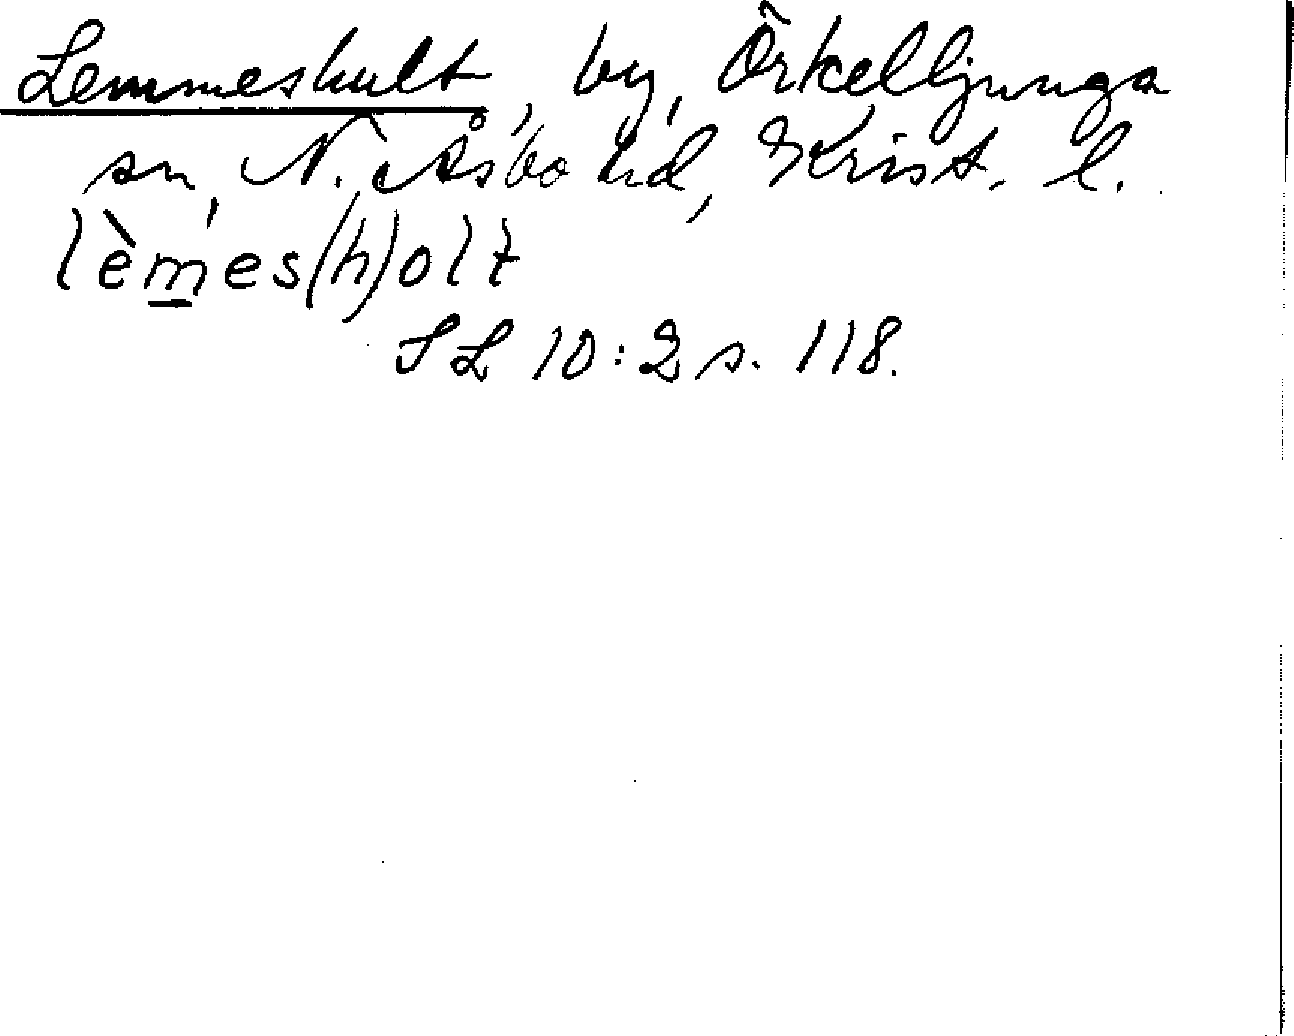 Lemmeshult, by, Örkelljunga
sn, N. Åsbo hd, Krist. l.
lèm̲es(h)olt
SL 10:2 s. 118.